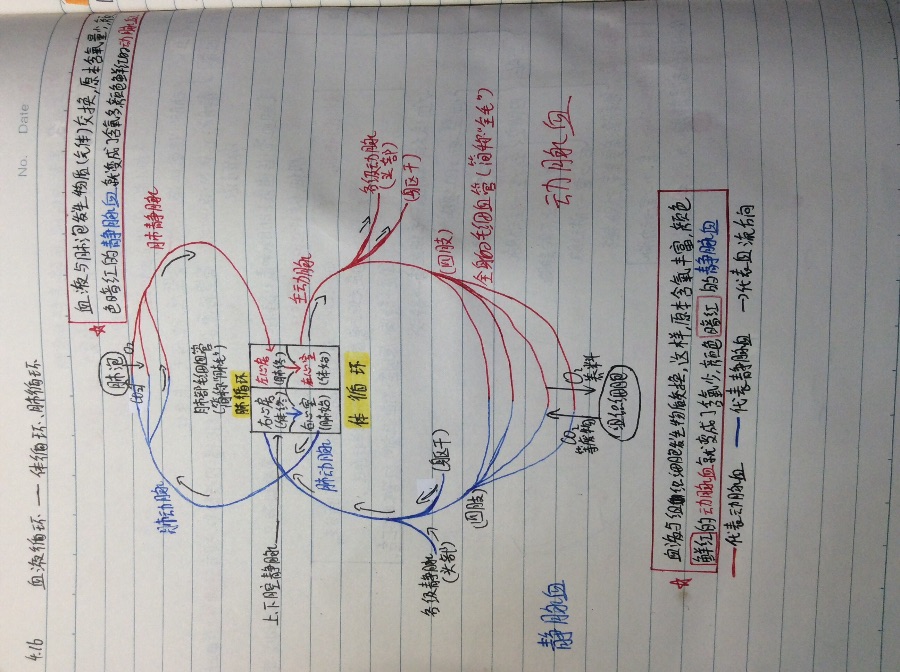 No.
Date
4.16
血液循环 —— 体循环、肺循环
血液与肺泡发生物质(气体)交换,原本含氧量少,颜
色暗红的静脉血就变成了含氧多,颜色鲜红的动脉血
肺泡
CO₂
O₂
肺静脉
肺动脉
肺部毛细血管
肺循环
右心房
(体终)
左心房
(肺终)
右心室
(肺始)
左心室
(体始)
体循环
上下腔静脉
肺动脉
主动脉
各级动脉
(头部)
(躯干)
(四肢)
全身的毛细血管(简称"全毛")
各级静脉
(头部)
(躯干)
(四肢)
CO₂
等废物
O₂
养料
组织细胞
静脉血
动脉血
血液与组织细胞发生物质交换,这样,原本含氧丰富,颜色
鲜红的动脉血就变成了含氧少,颜色暗红的静脉血
—代表动脉血 —代表静脉血 →代表血流方向